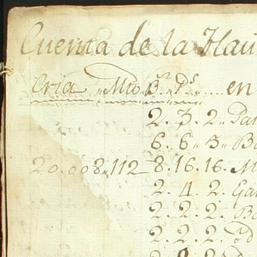 Cuenta de la Hau
Cria „ Mto Bs. Ps. .... en
2. 3. 2. Par
6. 6. 3. Ba
20.008,112 8.16.16. M
2. 4. 2. Gar
2. 2. 2. Ba
2. 2. 2. Pd
2.